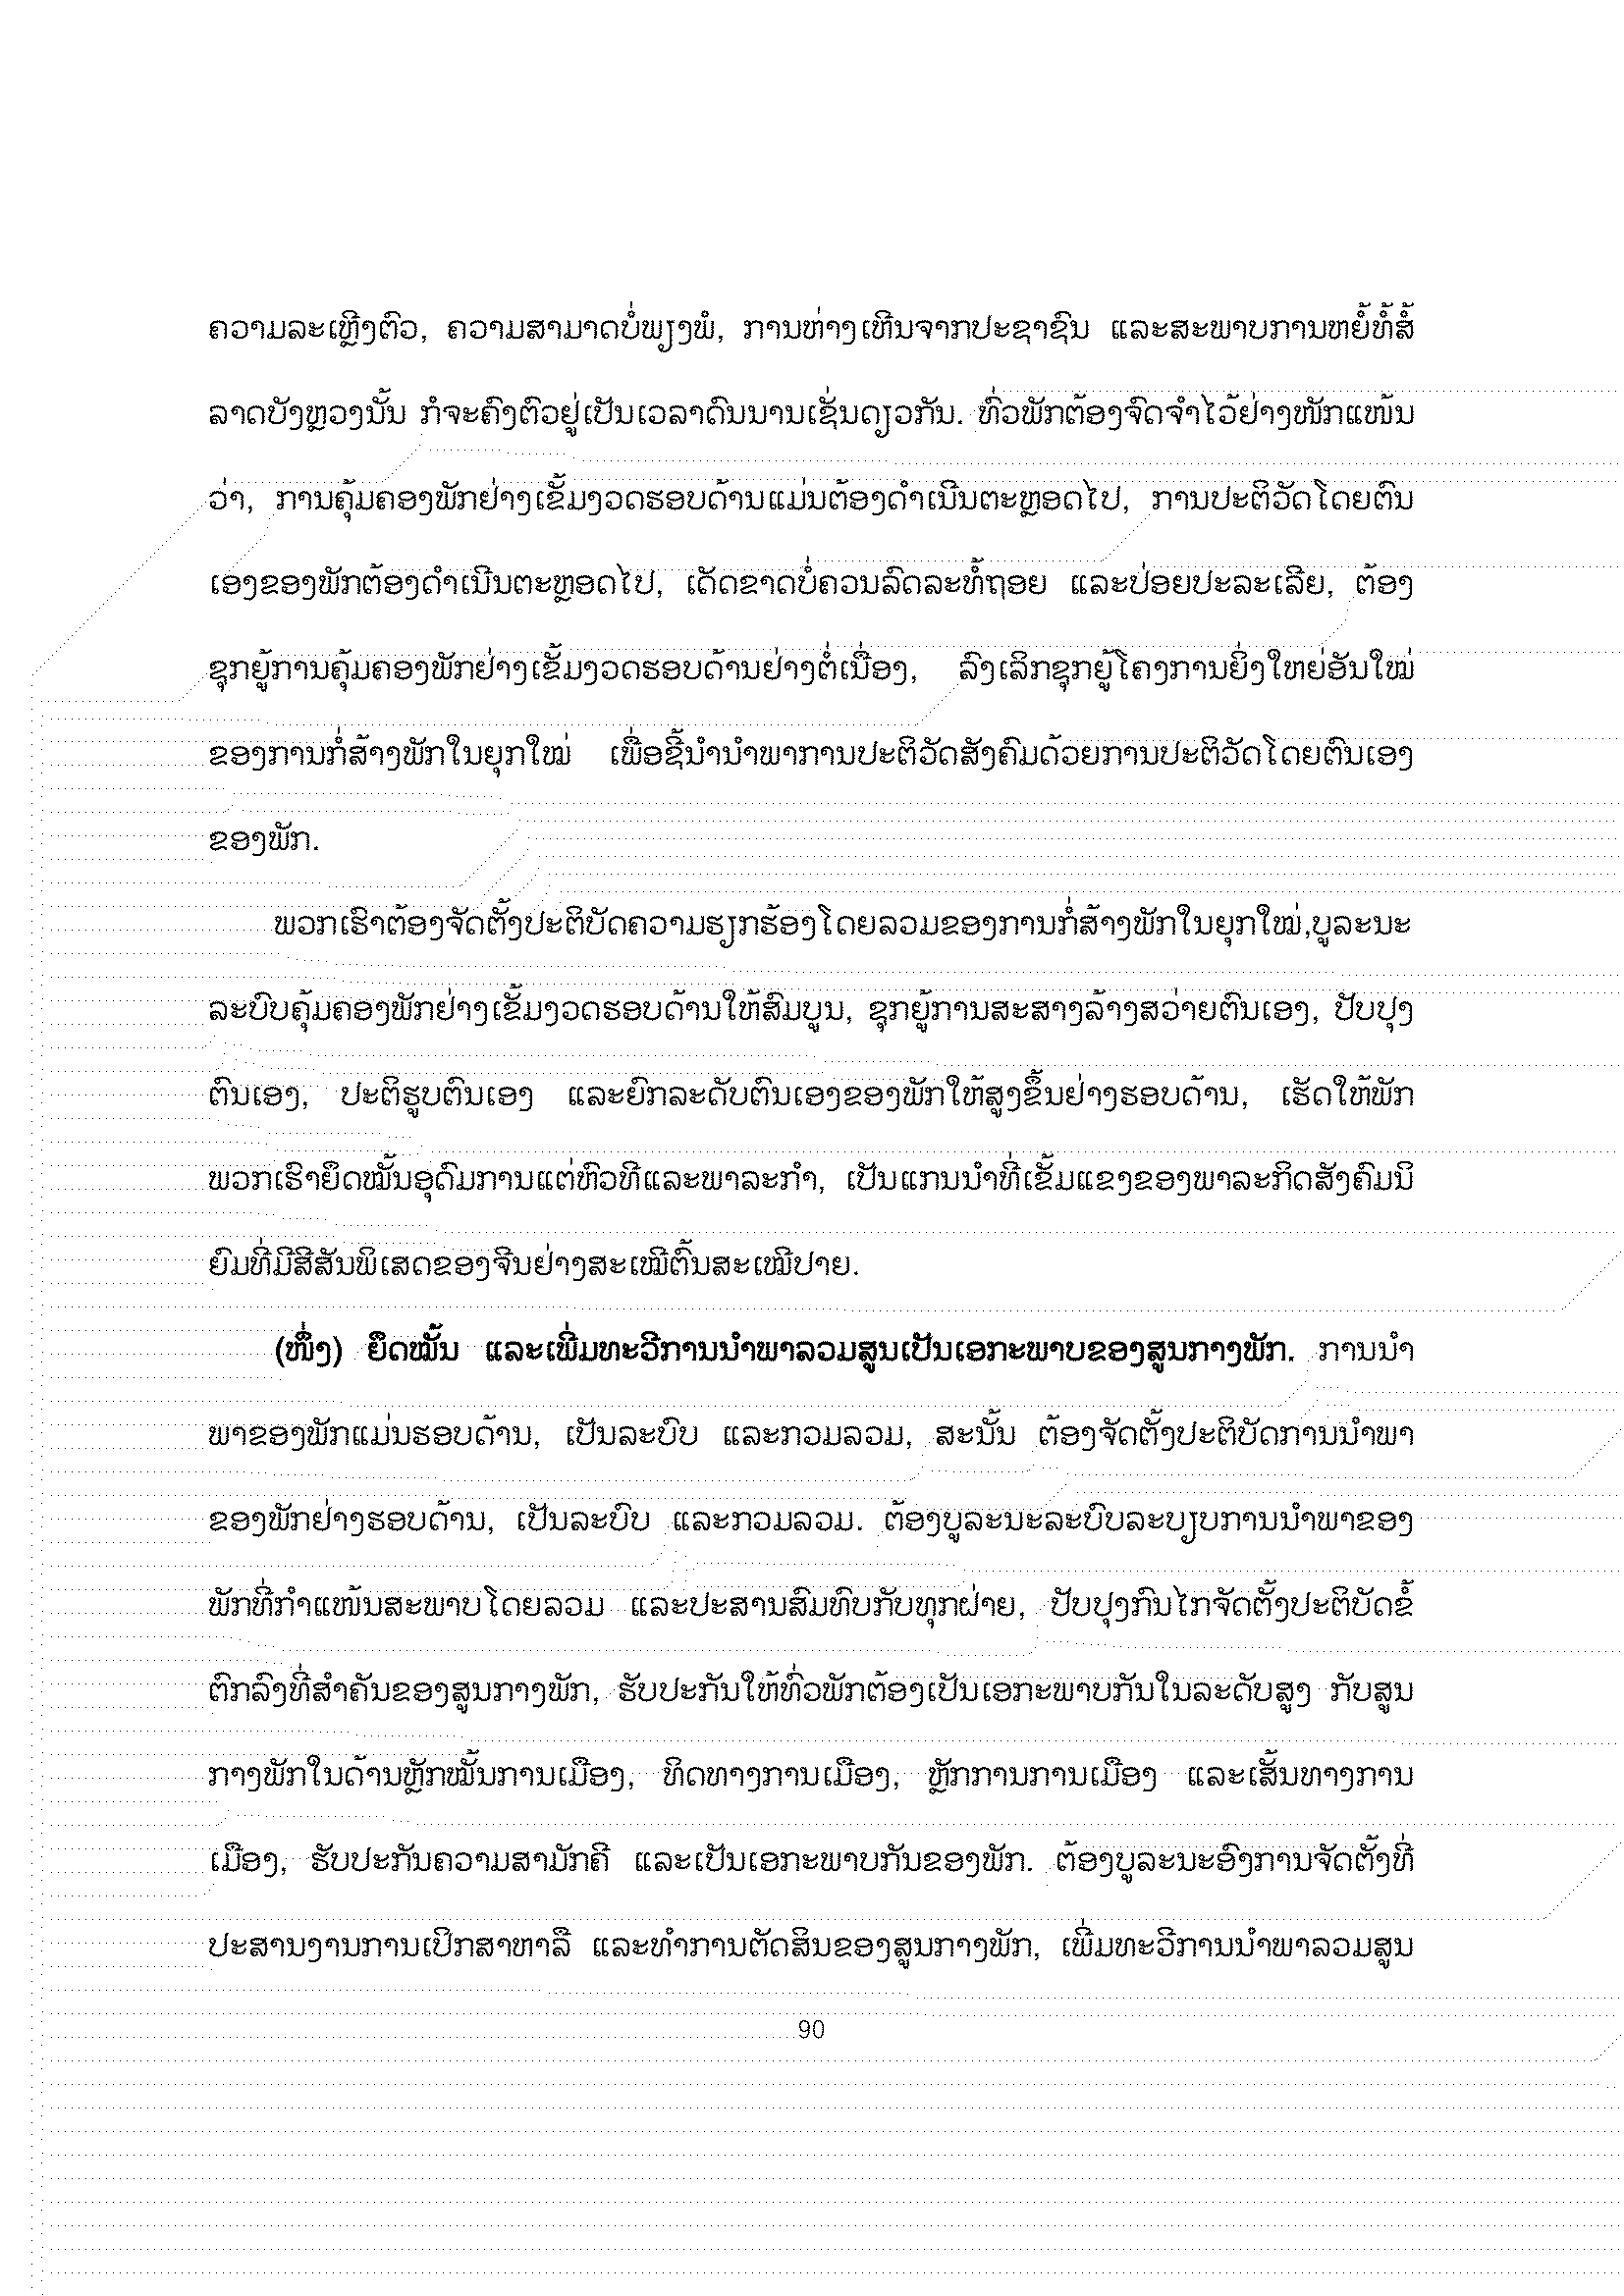 ຄວາມລະເຫຼີງຕົວ, ຄວາມສາມາດບໍ່ພຽງພໍ, ການຫ່າງເຫີນຈາກປະຊາຊົນ ແລະສະພາບການຫຍໍ້ທໍ້ສໍ້
ລາດບັງຫຼວງນັ້ນ ກໍຈະຄົງຕົວຢູ່ເປັນເວລາດົນນານເຊັ່ນດຽວກັນ. ທົ່ວພັກຕ້ອງຈົດຈຳໄວ້ຢ່າງໜັກແໜ້ນ
ວ່າ, ການຄຸ້ມຄອງພັກຢ່າງເຂັ້ມງວດຮອບດ້ານແມ່ນຕ້ອງດຳເນີນຕະຫຼອດໄປ, ການປະຕິວັດໂດຍຕົນ
ເອງຂອງພັກຕ້ອງດຳເນີນຕະຫຼອດໄປ, ເດັດຂາດບໍ່ຄວນລົດລະທໍ້ຖອຍ ແລະປ່ອຍປະລະເລີຍ, ຕ້ອງ
ຊຸກຍູ້ການຄຸ້ມຄອງພັກຢ່າງເຂັ້ມງວດຮອບດ້ານຢ່າງຕໍ່ເນື່ອງ, ລົງເລິກຊຸກຍູ້ໂຄງການຍິ່ງໃຫຍ່ອັນໃໝ່
ຂອງການກໍ່ສ້າງພັກໃນຍຸກໃໝ່ ເພື່ອຊີ້ນຳນຳພາການປະຕິວັດສັງຄົມດ້ວຍການປະຕິວັດໂດຍຕົນເອງ
ຂອງພັກ.
ພວກເຮົາຕ້ອງຈັດຕັ້ງປະຕິບັດຄວາມຮຽກຮ້ອງໂດຍລວມຂອງການກໍ່ສ້າງພັກໃນຍຸກໃໝ່,ບູລະນະ
ລະບົບຄຸ້ມຄອງພັກຢ່າງເຂັ້ມງວດຮອບດ້ານໃຫ້ສົມບູນ, ຊຸກຍູ້ການສະສາງລ້າງສວ່າຍຕົນເອງ, ປັບປຸງ
ຕົນເອງ, ປະຕິຮູບຕົນເອງ ແລະຍົກລະດັບຕົນເອງຂອງພັກໃຫ້ສູງຂຶ້ນຢ່າງຮອບດ້ານ, ເຮັດໃຫ້ພັກ
ພວກເຮົາຍຶດໝັ້ນອຸດົມການແຕ່ຫົວທີແລະພາລະກຳ, ເປັນແກນນຳທີ່ເຂັ້ມແຂງຂອງພາລະກິດສັງຄົມນິ
ຍົມທີ່ມີສີສັນພິເສດຂອງຈີນຢ່າງສະເໝີຕົ້ນສະເໝີປາຍ.
(ໜຶ່ງ) ຍຶດໝັ້ນ ແລະເພີ່ມທະວີການນຳພາລວມສູນເປັນເອກະພາບຂອງສູນກາງພັກ. ການນຳ
ພາຂອງພັກແມ່ນຮອບດ້ານ, ເປັນລະບົບ ແລະກວມລວມ, ສະນັ້ນ ຕ້ອງຈັດຕັ້ງປະຕິບັດການນຳພາ
ຂອງພັກຢ່າງຮອບດ້ານ, ເປັນລະບົບ ແລະກວມລວມ. ຕ້ອງບູລະນະລະບົບລະບຽບການນຳພາຂອງ
ພັກທີ່ກຳແໜ້ນສະພາບໂດຍລວມ ແລະປະສານສົມທົບກັບທຸກຝ່າຍ, ປັບປຸງກົນໄກຈັດຕັ້ງປະຕິບັດຂໍ້
ຕົກລົງທີ່ສຳຄັນຂອງສູນກາງພັກ, ຮັບປະກັນໃຫ້ທົ່ວພັກຕ້ອງເປັນເອກະພາບກັນໃນລະດັບສູງ ກັບສູນ
ກາງພັກໃນດ້ານຫຼັກໝັ້ນການເມືອງ, ທິດທາງການເມືອງ, ຫຼັກການການເມືອງ ແລະເສັ້ນທາງການ
ເມືອງ, ຮັບປະກັນຄວາມສາມັກຄີ ແລະເປັນເອກະພາບກັນຂອງພັກ. ຕ້ອງບູລະນະອົງການຈັດຕັ້ງທີ່
ປະສານງານການເປິກສາຫາລື ແລະທຳການຕັດສິນຂອງສູນກາງພັກ, ເພີ່ມທະວີການນຳພາລວມສູນ
90